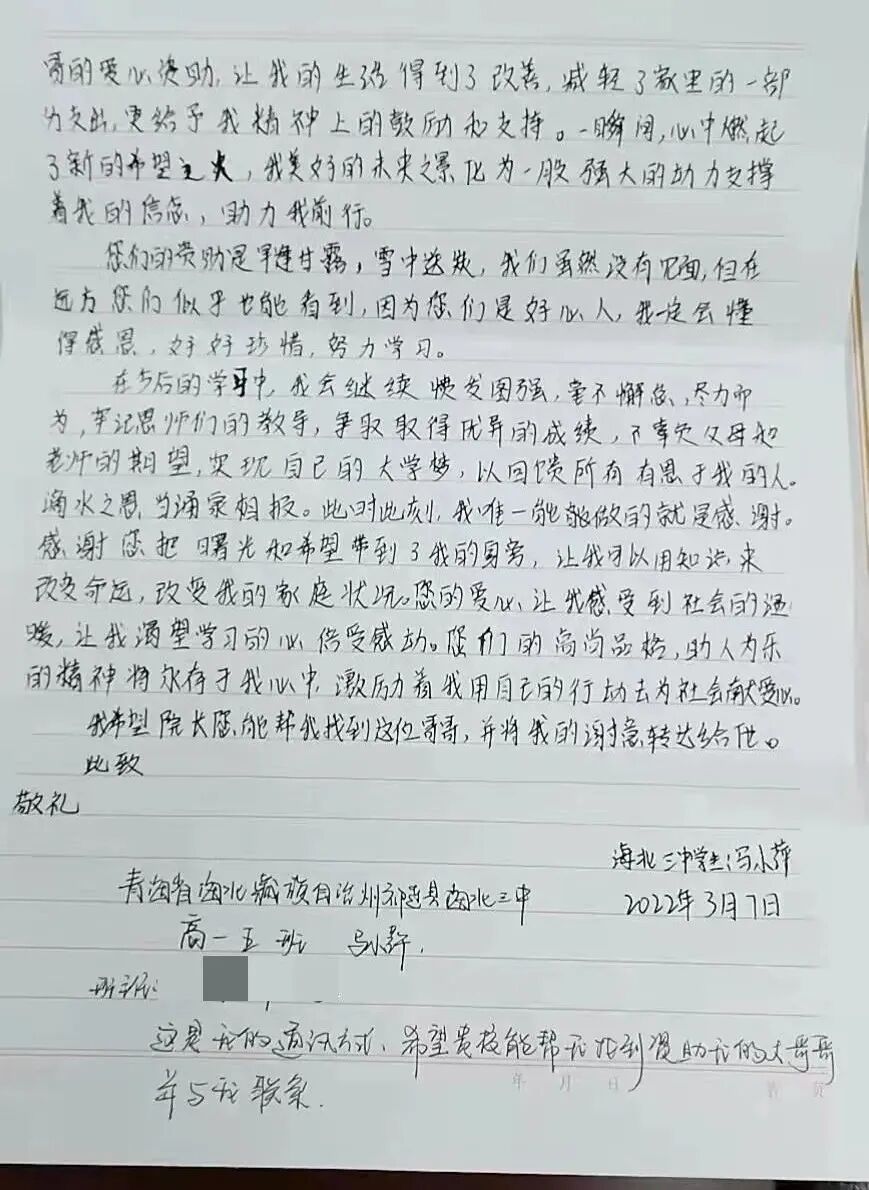 哥的爱心资助,让我的生活得到了改善,减轻了家里的一部
分支出,更给予我精神上的鼓励和支持。一瞬间,心中燃起
了新的希望之火,我美好的未来之景化为一股强大的动力支撑
着我的信念,助力我前行。
您们的资助是旱逢甘露,雪中送炭,我们虽然没有见面,但在
远方您们似乎也能看到,因为您们是好心人,我一定会懂
得感恩,好好珍惜,努力学习。
在今后的学习中,我会继续愤发图强,毫不懈怠,尽力而
为,牢记恩师们的教导,争取取得优异的成绩,不辜负父母和
老师的期望,实现自己的大学梦,以回馈所有有恩于我的人。
滴水之恩,当涌泉相报。此时此刻,我唯一能能做的就是感谢。
感谢您把曙光和希望带到了我的身旁,让我可以用知识来
改变命运,改变我的家庭状况。您的爱心,让我感受到社会的温
暖,让我渴望学习的心倍受感动。您们的高尚品格,助人为乐
的精神将永存于我心中,激励着我用自己的行动去为社会献爱心。
我希望院长您能帮我找到这位哥哥,并将我的谢意转达给他。
此致
敬礼
海北三中学生:冯小萍
青海省海北藏族自治州祁连县海北三中
2022年3月7日
高一五班
班主任:
这是我的通讯方式,希望贵校能帮我找到资助我的大哥哥
并与我联系.
年 月 日 第 页